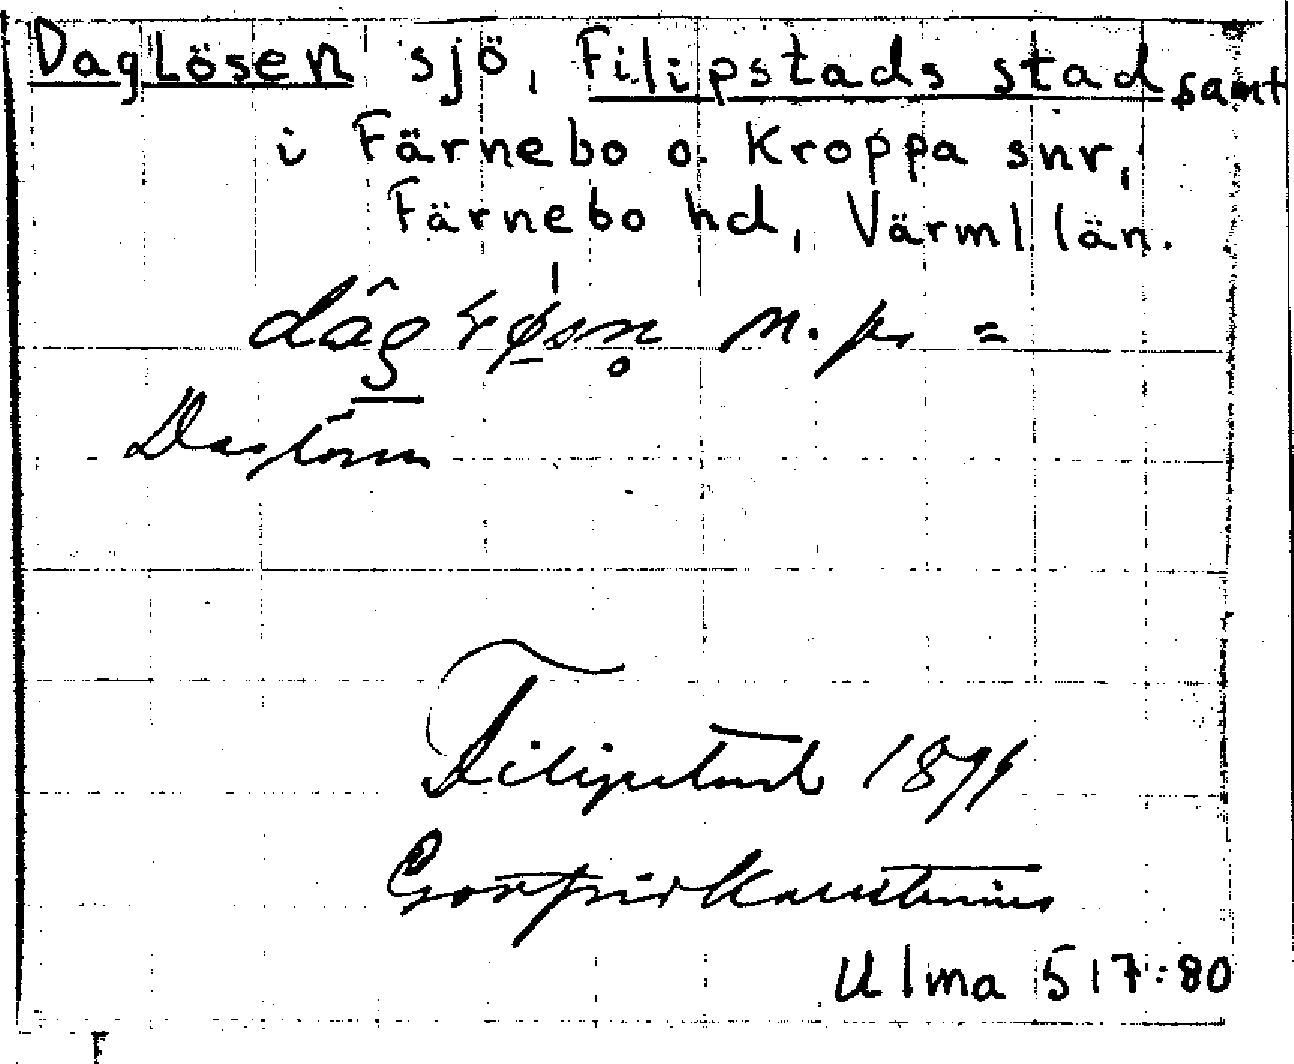 Daglösen sjö, Filipstads stad samt
i Färnebo o. Kroppa snr,
Färnebo hd, Värml län.
n. pr =
Daglösen
Filipstad 1899
Gottfrid Kallstenius
Ulma 517:80